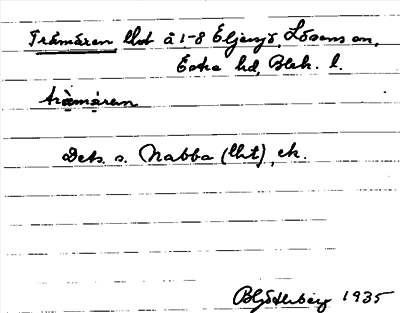 Tråmåren lht å 1-8 Eljasjö, Lösens sn,
Östra hd, Blek. l.
tråmåren
Dets. s. Nabba (lht), ek.
B Hj Ohlberg 1935